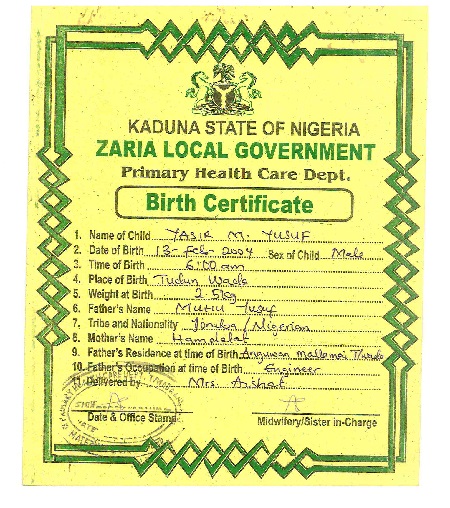 KADUNA STATE OF NIGERIA
ZARIA LOCAL GOVERNMENT
Primary Health Care Dept.
Birth Certificate
1. Name of Child YASIR M. YUSUF
2. Date of Birth 13- Feb- 2004 Sex of Child Male
3. Time of Birth 6:00 am
4. Place of Birth Tudun Wada
5. Weight at Birth 2.5kg
6. Father's Name Yusuf
7. Tribe and Nationality Yoruba / Nigerian
8. Mother's Name
9. Father's Residence at time of Birth Anguwan
10. Father's Occupation at time of Birth Engineer
11. Delivered by Mrs. Aishat
Date & Office Stamp Midwifery/Sister in-Charge